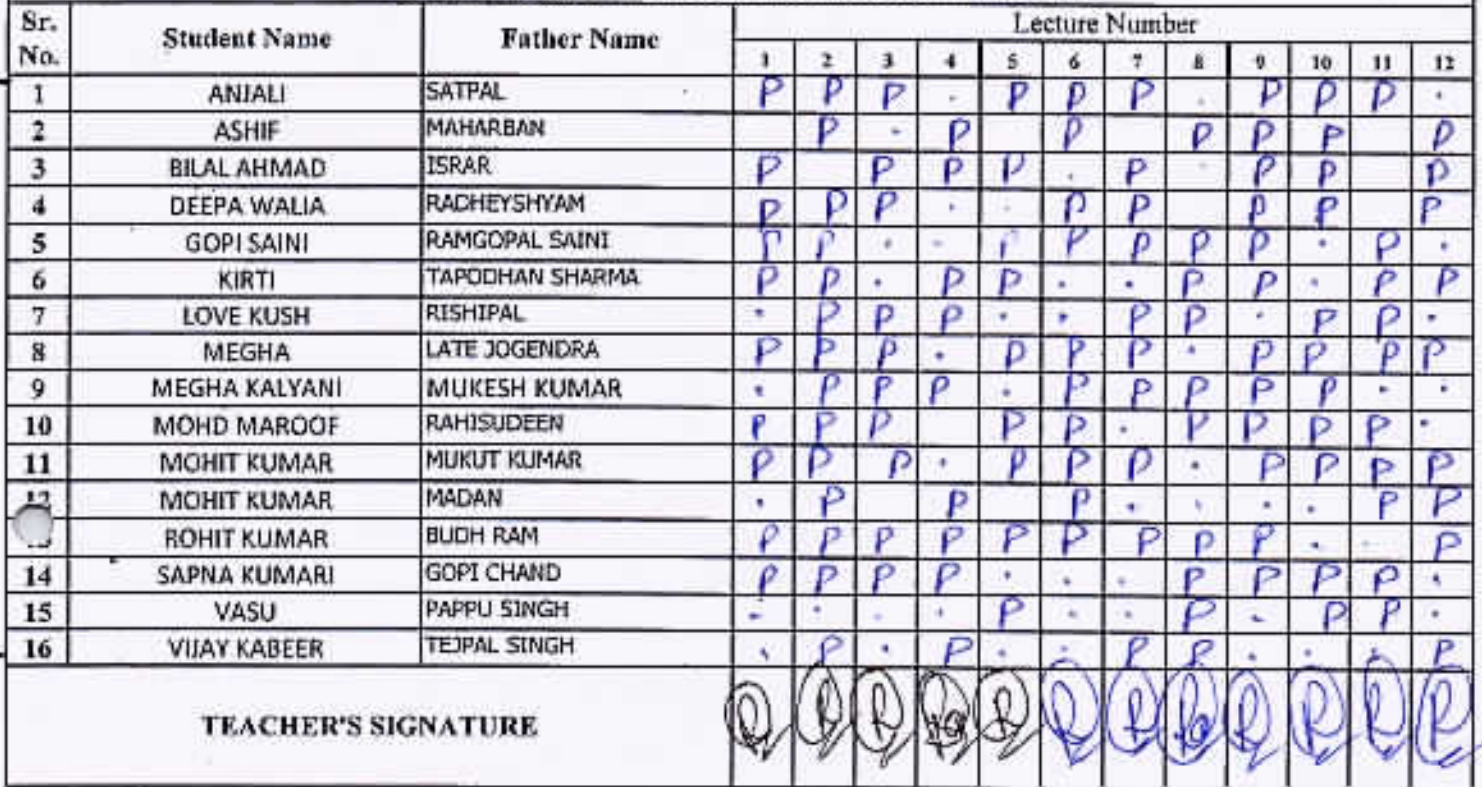 Sr. No. Student Name Father Name Lecture Number
1 2 3 4 5 6 7 8 9 10 11 12
1 ANJALI SATPAL P P P . P P P . P P P .
2 ASHIF MAHARBAN P . P P P P P P
3 BILAL AHMAD ISRAR P P P P . P . P P P
4 DEEPA WALIA RADHEYSHYAM P P P . . P P P P P
5 GOPI SAINI RAMGOPAL SAINI P P . . P P P P P . P .
6 KIRTI TAPODHAN SHARMA P P . P P . . P P . P P
7 LOVE KUSH RISHIPAL . P P P . . P P . P P .
8 MEGHA LATE JOGENDRA P P P . P P P . P P P P
9 MEGHA KALYANI MUKESH KUMAR . P P P . P P P P P . .
10 MOHD MAROOF RAHISUDEEN P P P P P . P P P P .
11 MOHIT KUMAR MUKUT KUMAR P P P . P P P . P P P P
MOHIT KUMAR MADAN . P P P . . . . P P
ROHIT KUMAR BUDH RAM P P P P P P P P P . . P
14 SAPNA KUMARI GOPI CHAND P P P P . . . P P P P .
15 VASU PAPPU SINGH - . . . P . . P - P P .
16 VIJAY KABEER TEJPAL SINGH . P . P . . P P . . . P
TEACHER'S SIGNATURE